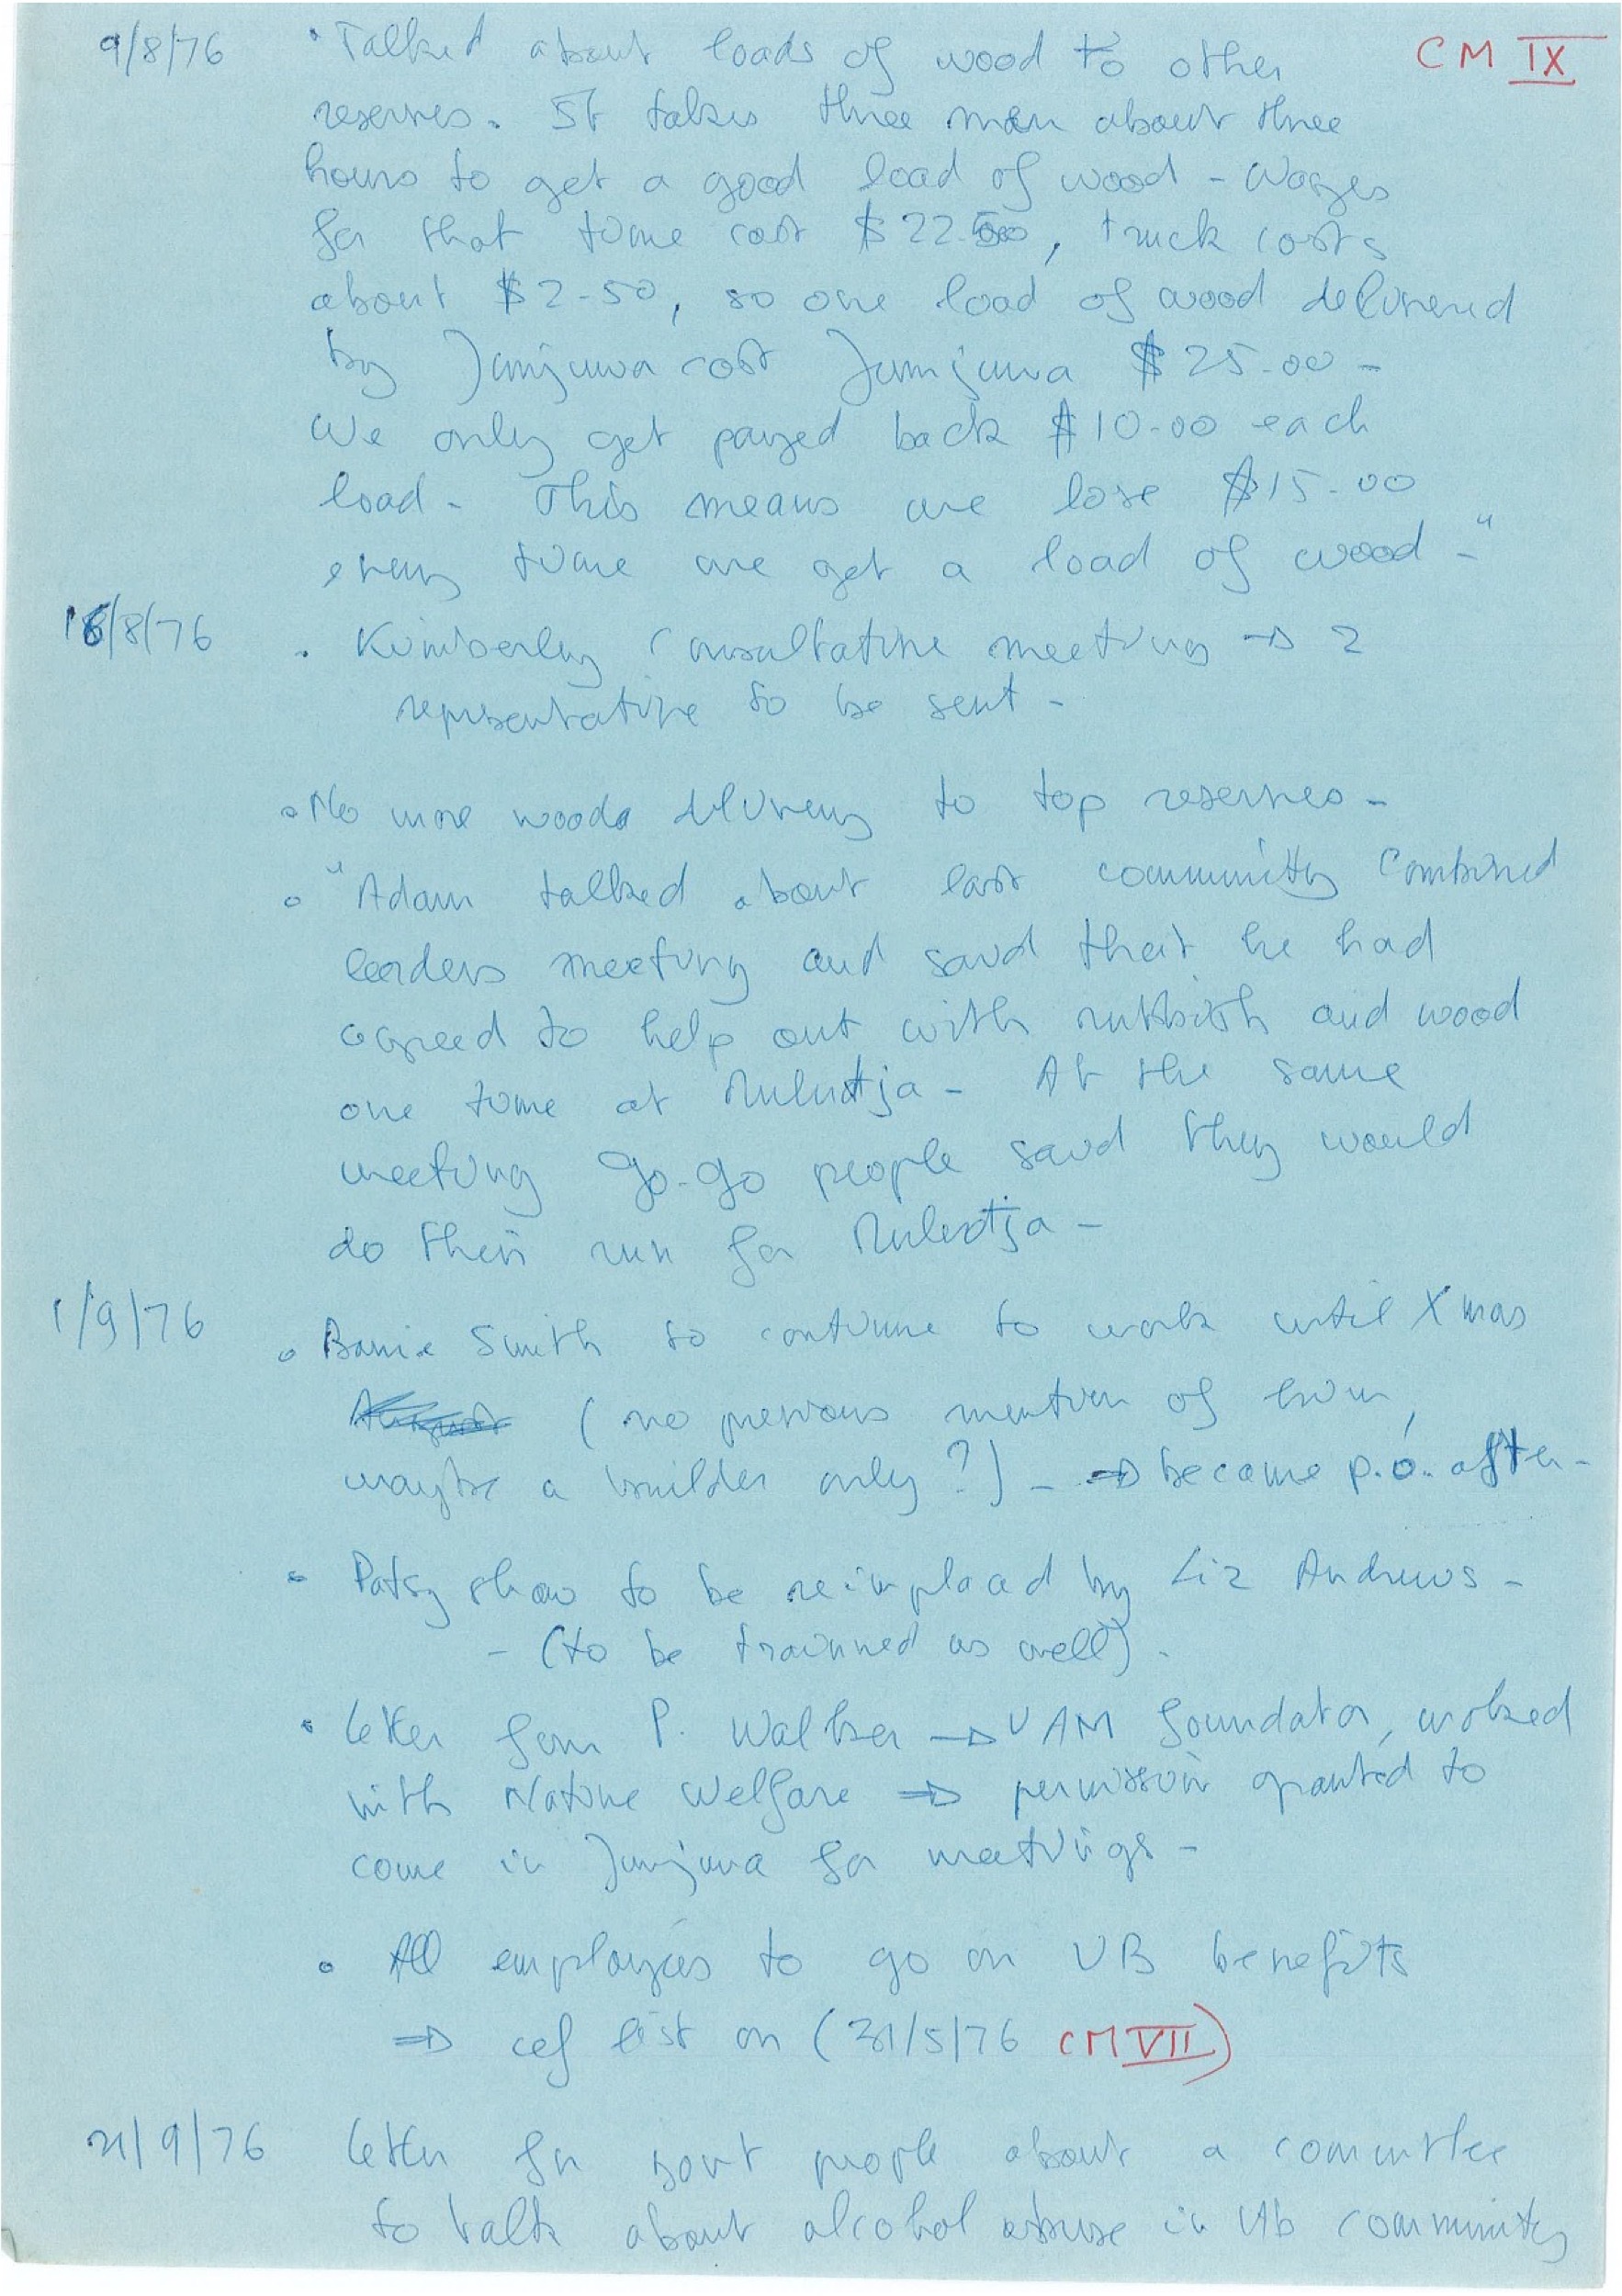 CM IX
9/8/76 "Talked about loads of wood to other
reserves. It takes three men about three
hours to get a good load of wood - Wages
for that time cost $22.50, truck costs
about $2-50, so one load of wood delivered
by Junjuwa cost Junjuwa $25-00 -
We only get payed back $10-00 each
load - This means we lose $15-00
every time we get a load of wood -"
16/8/76 • Kimberley Consultative meeting → 2
representative to be sent -
• No more wood delivery to top reserves -
• "Adam talked about last community combined
leaders meeting and said that he had
agreed to help out with rubbish and wood
one time at Muludtja - At the same
meeting Go-Go people said they would
do their run for Muludtja -
1/9/76 • Barrie Smith to continue to work until Xmas
(no previous mention of him,
maybe a builder only?) - ⇒ became p.o. after -
• Patsy Shaw to be reimplaced by Liz Andrews -
- (to be trainned as well) -
• letter from P. Walker → UAM foundator, worked
with Native Welfare ⇒ permission granted to
come in Junjuwa for meetings -
• All employees to go on UB benefits
⇒ cef list on (31/5/76 CM VII)
21/9/76 letter for Govt people about a committee
to talk about alcohol abuse in Ab community